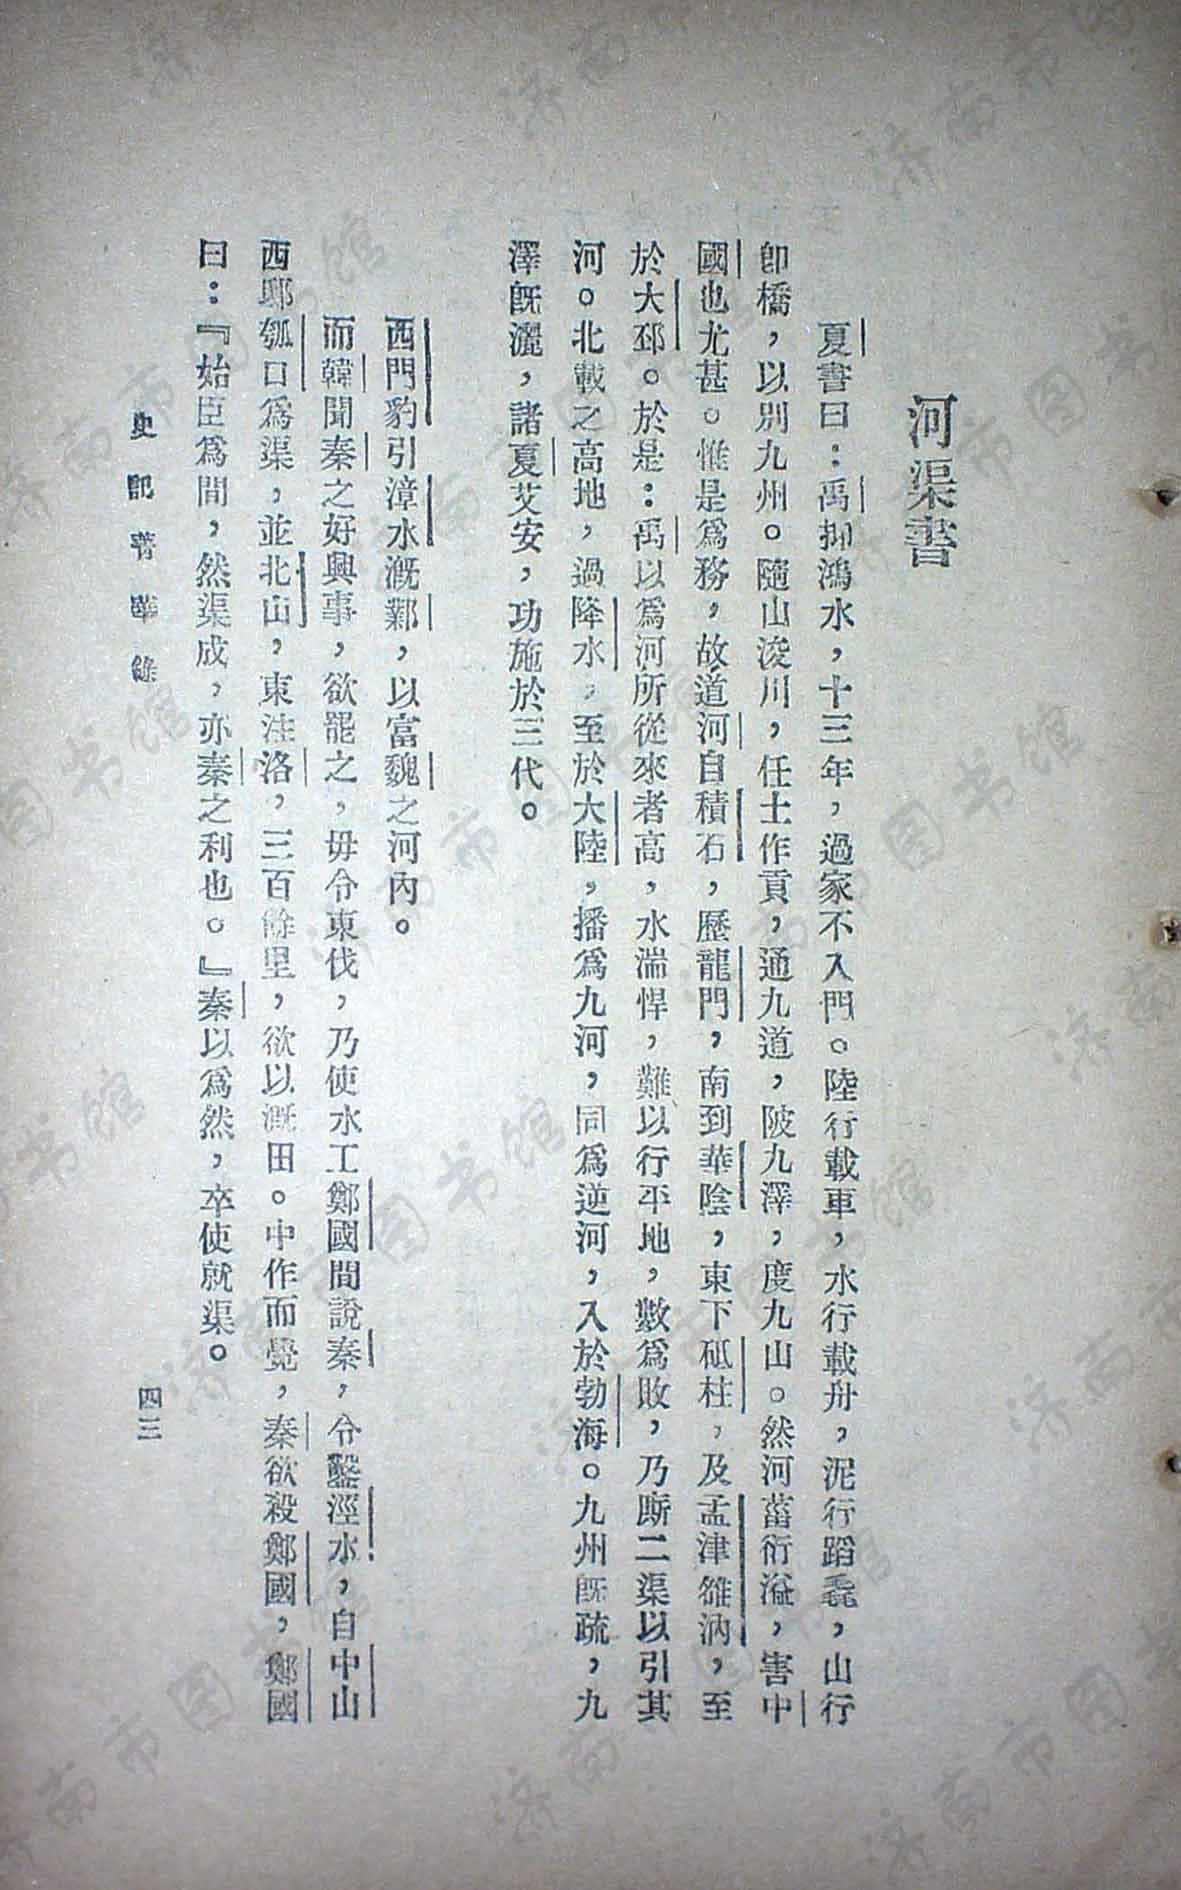 河渠書
夏書曰：禹抑鴻水，十三年，過家不入門。陸行載車，水行載舟，泥行蹈毳，山行
卽橋，以別九州。隨山浚川，任土作貢，通九道，陂九澤，度九山。然河菑衍溢，害中
國也尤甚。惟是爲務，故道河自積石，歷龍門，南到華陰，東下砥柱，及孟津雒汭，至
於大邳。於是：禹以爲河所從來者高，水湍悍，難以行平地，數爲敗，乃廝二渠以引其
河。北載之高地，過降水，至於大陸，播爲九河，同爲逆河，入於勃海。九州旣疏，九
澤旣灑，諸夏艾安，功施於三代。
西門豹引漳水漑鄴，以富魏之河內。
而韓聞秦之好興事，欲罷之，毋令東伐，乃使水工鄭國間說秦，令鑿涇水，自中山
西邸瓠口爲渠，並北山，東注洛，三百餘里，欲以漑田。中作而覺，秦欲殺鄭國，鄭國
曰：『始臣爲間，然渠成，亦秦之利也。』秦以爲然，卒使就渠。
史記菁華錄
四三
济南市图书馆